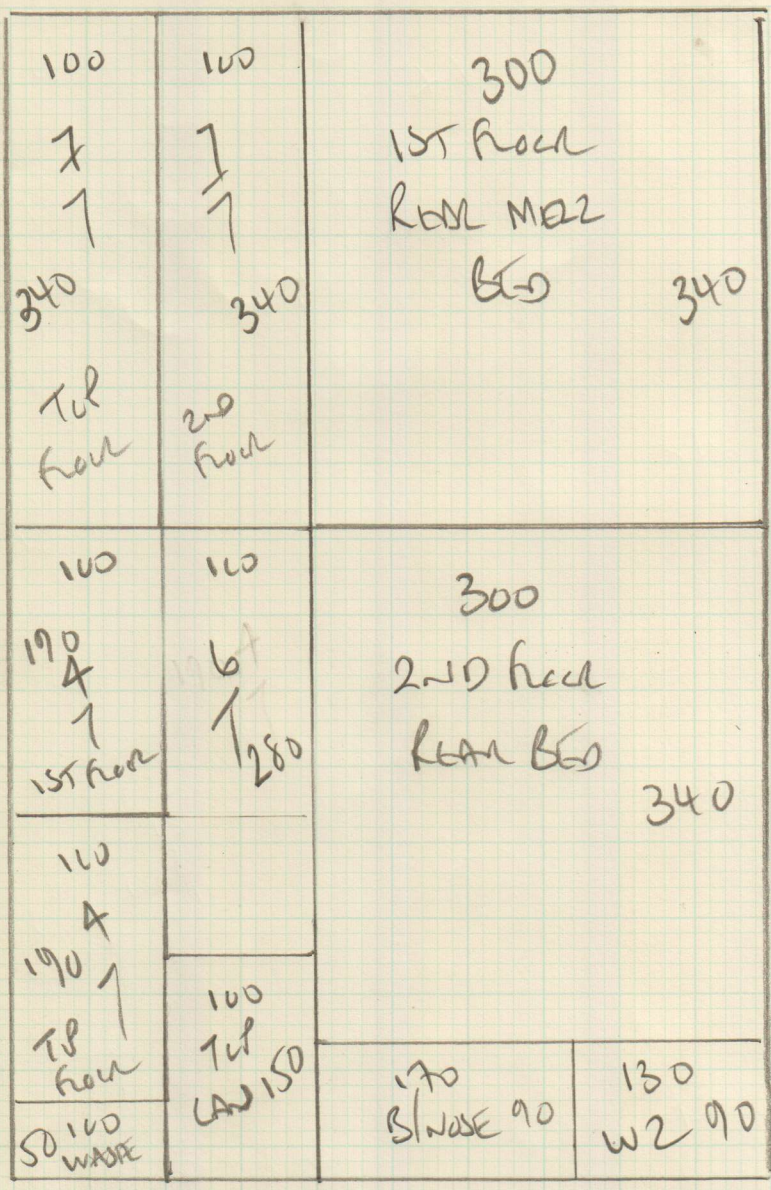 100
7
1
340
TOP
FLOOR
100
7
1
340
2ND
FLOOR
300
1ST FLOOR
REAR MEZZ
BED
340
100
190
4
1
1ST FLOOR
100
6
1
280
300
2ND FLOOR
REAR BED
340
100
4
190
1
TOP
FLOOR
50 100
WASTE
100
TOP
LAN 150
170
B/NOSE 90
130
W2 90